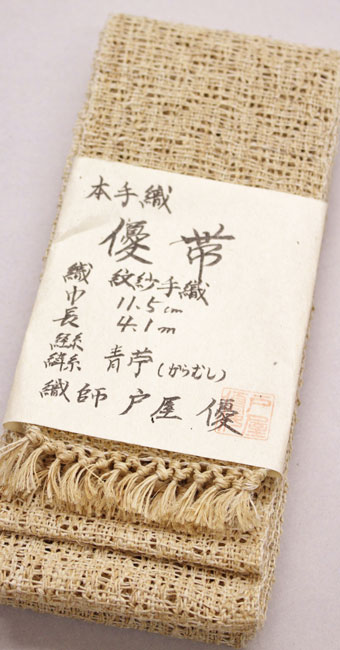 本手織
優帯
織 紋紗手織
巾 11.5cm
長 4.1m
経糸
緯糸 青苧(からむし)
織師 戸屋 優
戸屋優